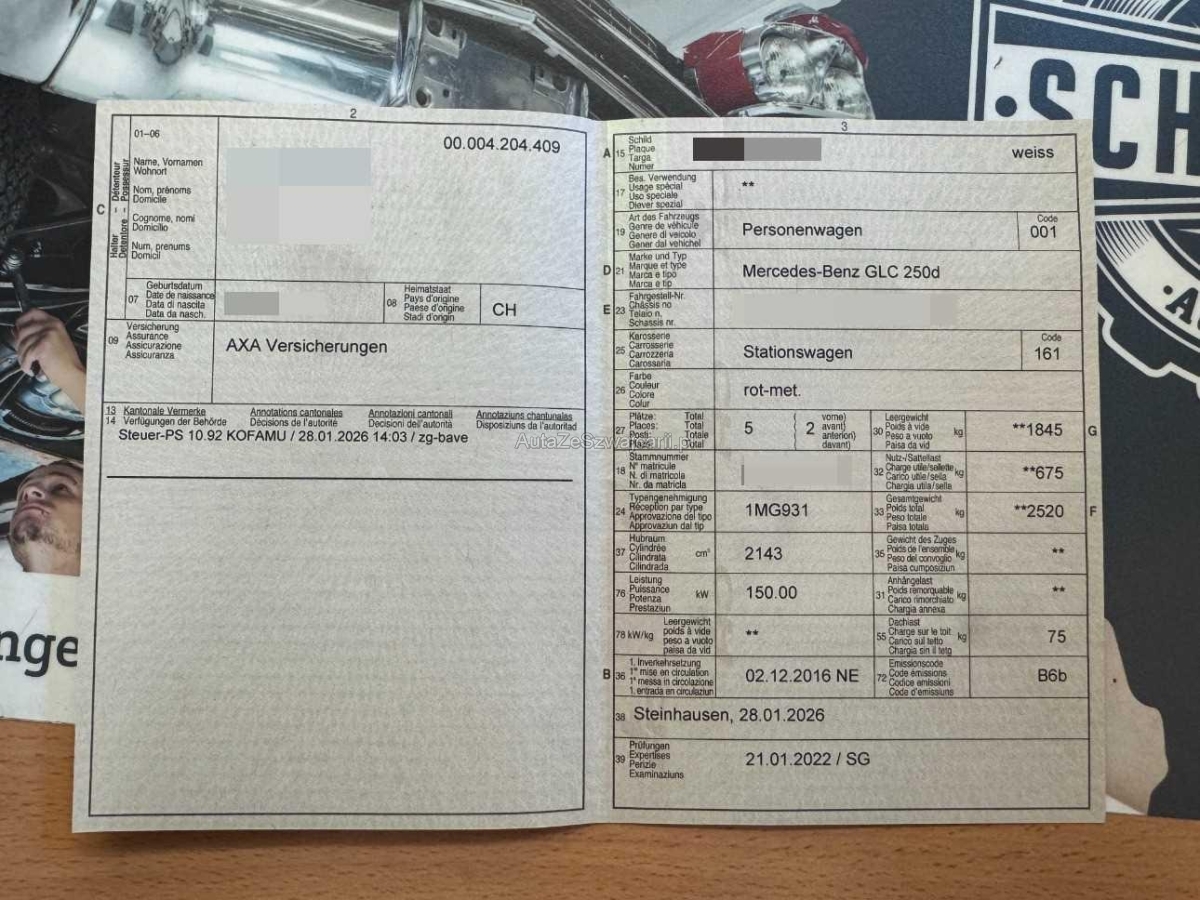 2
01–06
00.004.204.409
C
Halter - Détenteur
Detentore - Possessur
Name, Vornamen
Wohnort
Nom, prénoms
Domicile
Cognome, nomi
Domicilio
Num, prenums
Domicil
07
Geburtsdatum
Date de naissance
Data di nascita
Data da nasch.
08
Heimatstaat
Pays d'origine
Paese d'origine
Stadi d'origin
CH
09
Versicherung
Assurance
Assicurazione
Assicuranza
AXA Versicherungen
13 Kantonale Vermerke Annotations cantonales Annotazioni cantonali Annotaziuns chantunalas
14 Verfügungen der Behörde Décisions de l'autorité Decisioni dell'autorità Disposiziuns da l'autoritad
Steuer-PS 10.92 KOFAMU / 28.01.2026 14:03 / zg-bave
AutaZeSzwajcarii.pl
3
A 15
Schild
Plaque
Targa
Numer
weiss
17
Bes. Verwendung
Usage spécial
Uso speciale
Diever spezial
**
19
Art des Fahrzeugs
Genre de véhicule
Genere di veicolo
Gener dal vehichel
Personenwagen
Code
001
D 21
Marke und Typ
Marque et type
Marca e tipo
Marca e tip
Mercedes-Benz GLC 250d
E 23
Fahrgestell-Nr.
Châssis no
Telaio n.
Schassis nr.
25
Karosserie
Carrosserie
Carrozzeria
Carossaria
Stationswagen
Code
161
26
Farbe
Couleur
Colore
Colur
rot-met.
27
Plätze: Total
Places: Total
Posti: Totale
Plazs: Total
5
2
vorne)
avant)
anteriori)
davant)
30
Leergewicht
Poids à vide
Peso a vuoto
Paisa da vid
kg
**1845
G
18
Stammnummer
N° matricule
N. di matricola
Nr. da matricla
32
Nutz-/Sattellast
Charge utile/sellette
Carico utile/sella
Chargia utila/sella
kg
**675
24
Typengenehmigung
Réception par type
Approvazione del tipo
Approvaziun dal tip
1MG931
33
Gesamtgewicht
Poids total
Peso totale
Paisa totala
kg
**2520
F
37
Hubraum
Cylindrée
Cilindrata
Cilindrada
cm³
2143
35
Gewicht des Zuges
Poids de l'ensemble
Peso del convoglio
Paisa cumposiziun
kg
**
76
Leistung
Puissance
Potenza
Prestaziun
kW
150.00
31
Anhängelast
Poids remorquable
Carico rimorchiato
Chargia annexa
kg
**
78 kW/kg
Leergewicht
poids à vide
peso a vuoto
paisa da vid
**
55
Dachlast
Charge sur le toit
Carico sul tetto
Chargia sin il tetg
kg
75
B 36
1. Inverkehrsetzung
1re mise en circulation
1a messa in circolazione
1. entrada en circulaziun
02.12.2016 NE
72
Emissionscode
Code émissions
Codice emissioni
Code d'emissiuns
B6b
38
Steinhausen, 28.01.2026
39
Prüfungen
Expertises
Perizie
Examinaziuns
21.01.2022 / SG
SCH
nge